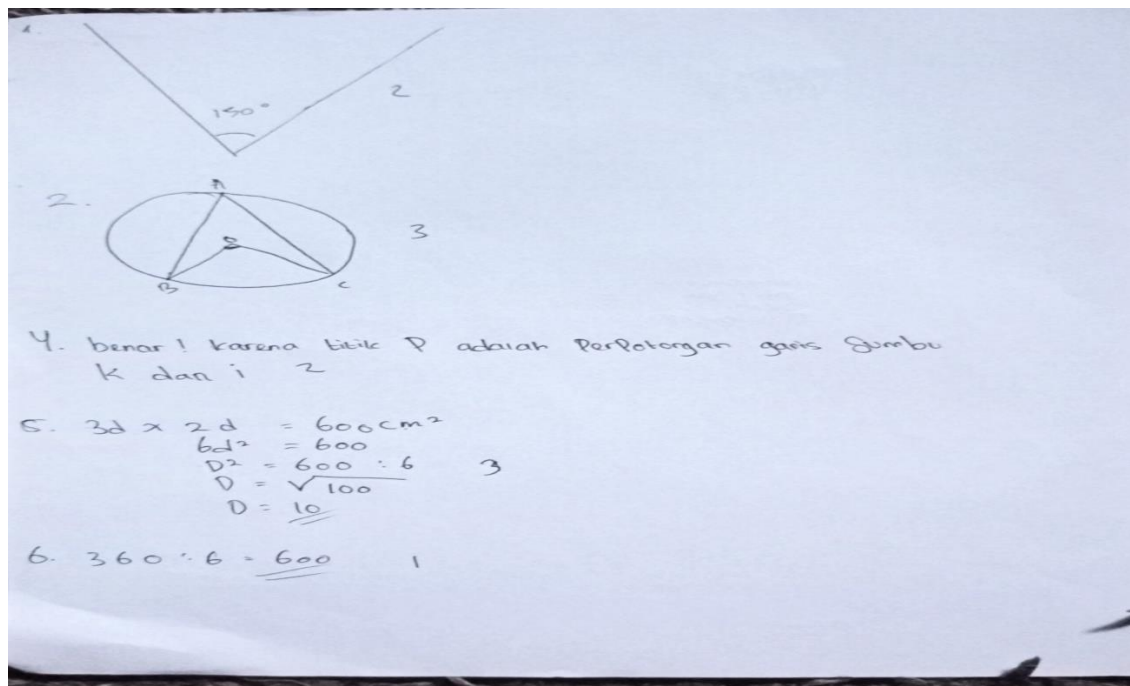 1.
150°
2
2.
A
S
B
C
3
4. benar! karena titik P adalah Perpotongan garis Sumbu
k dan i 2
5. 3d x 2d = 600cm²
6d² = 600
D² = 600 : 6 3
D = √100
D = 10
6. 360 : 6 = 600 1